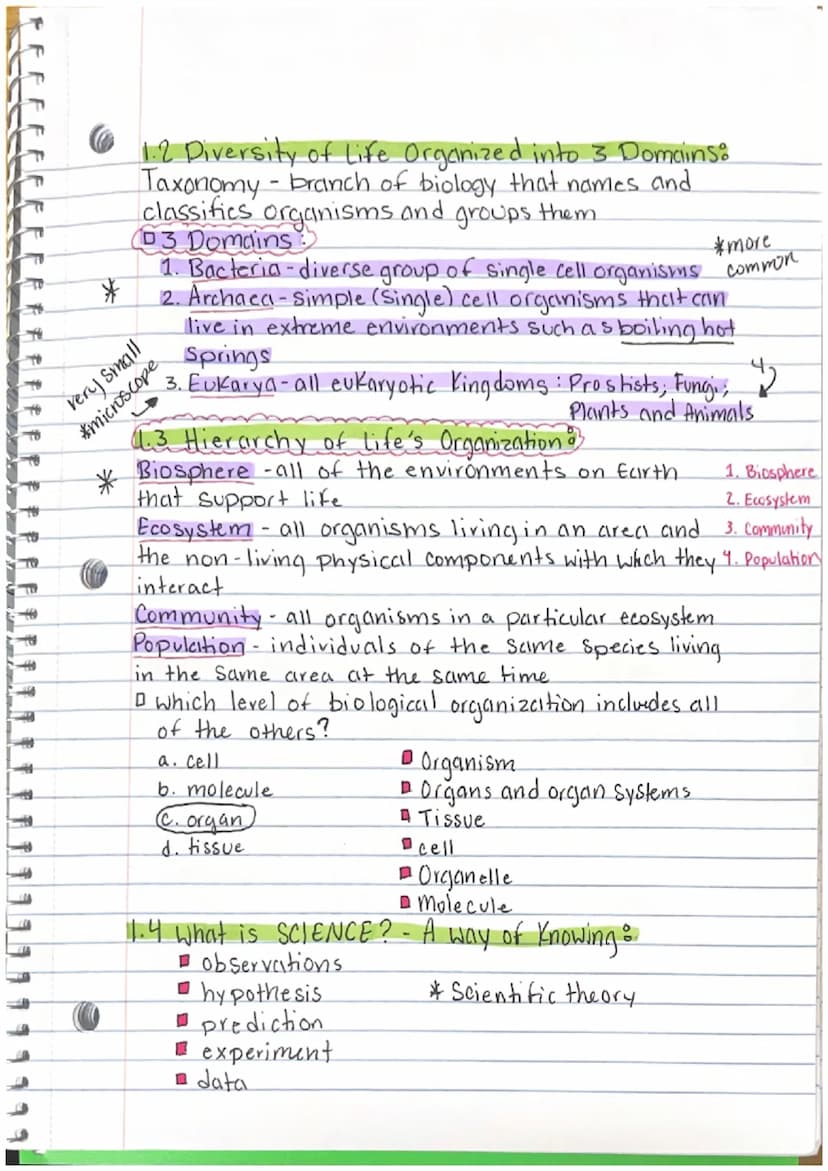 1.2 Diversity of Life Organized into 3 Domains:
Taxonomy - branch of biology that names and
classifies organisms and groups them
3 Domains:
*more
common
1. Bacteria - diverse group of single cell organisms
* 2. Archaea - simple (single) cell organisms that can
live in extreme environments such as boiling hot
springs
very small
*microscope
3. Eukarya - all eukaryotic Kingdoms: Prostists, Fungi,
4
Plants and Animals
1.3 Hierarchy of Life's Organization:
* Biosphere - all of the environments on Earth
that support life
Ecosystem - all organisms living in an area and
the non-living physical components with which they
interact
1. Biosphere
2. Ecosystem
3. Community
4. Population
Community - all organisms in a particular ecosystem
Population - individuals of the same species living
in the same area at the same time
which level of biological organization includes all
of the others?
a. cell
b. molecule
c. organ
d. tissue
Organism
Organs and organ systems
Tissue
cell
Organelle
Molecule
1.4 What is SCIENCE? - A way of Knowing:
observations
hypothesis
prediction
experiment
data
* Scientific theory